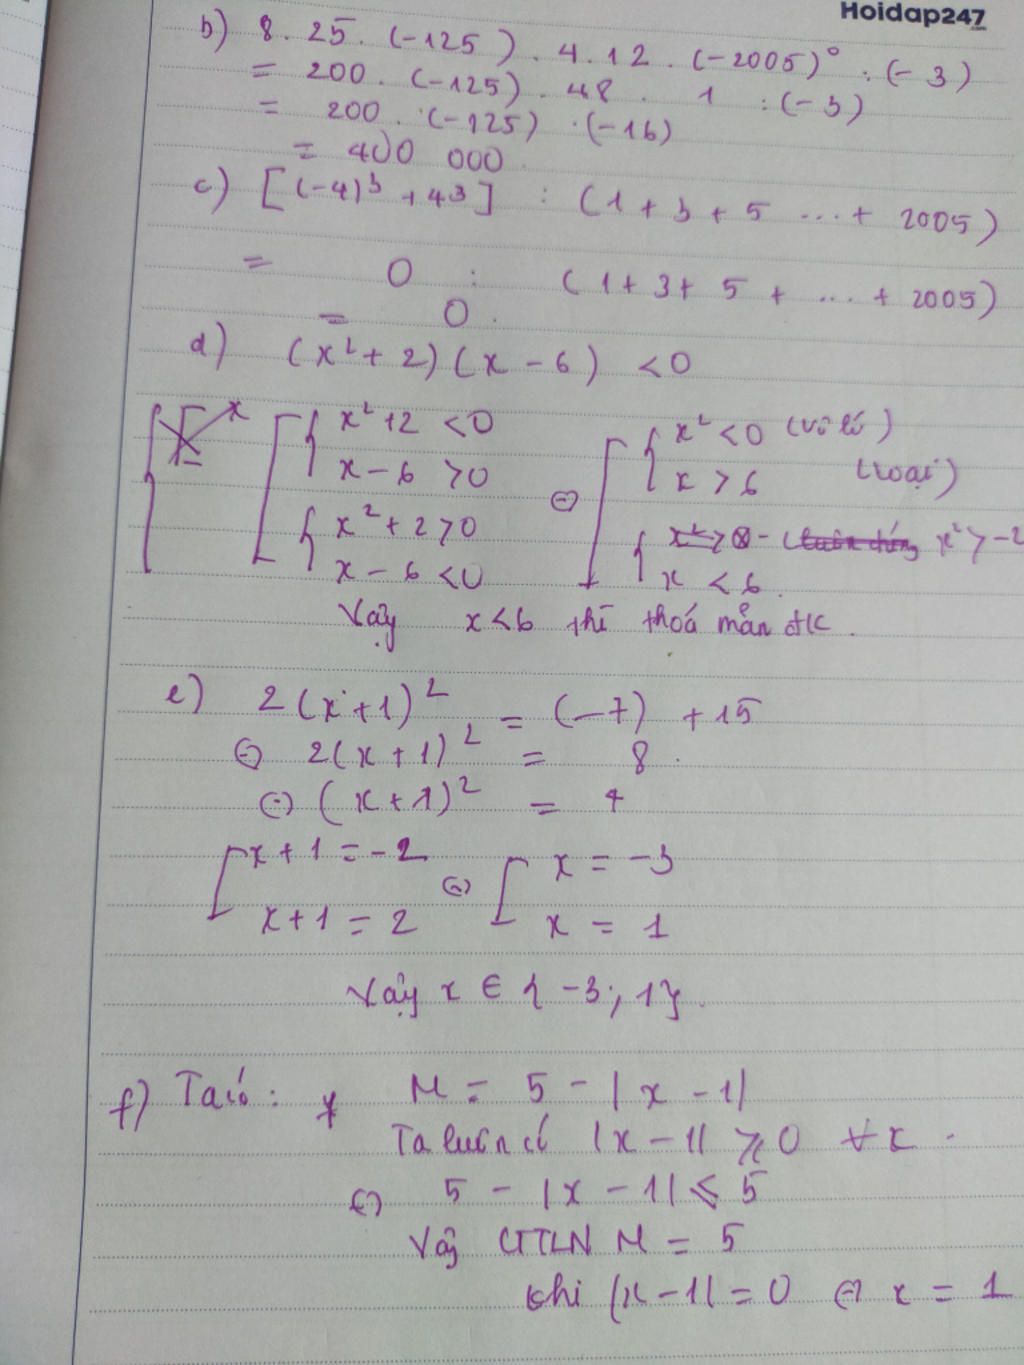 Hoidap247
.com
b) 8 . 25 . (-125) . 4 . 12 . (-2005)⁰ : (-3)
= 200 . (-125) . 48 . 1 : (-3)
= 200 . (-125) . (-16)
= 400 000
c) [(-4)³ + 4³] : (1 + 3 + 5 ... + 2005)
= 0 : (1 + 3 + 5 + ... + 2005)
= 0.
d) (x² + 2)(x - 6) < 0
x² + 2 < 0 ⇔ x² < 0 (vô lí)
x - 6 > 0 x > 6 (loại)
x² + 2 > 0 x² > -2
x - 6 < 0 x < 6.
Vậy x < 6 thì thoả mãn đk.
e) 2(x + 1)² = (-7) + 15
⇔ 2(x + 1)² = 8.
⇔ (x + 1)² = 4
[x + 1 = -2 ⇔ [x = -3
x + 1 = 2 x = 1
Vậy x ∈ {-3; 1}.
f) Ta có: M = 5 - |x - 1|
Ta luôn có |x - 1| ⩾ 0 ∀x.
⇔ 5 - |x - 1| ⩽ 5
Vậy GTLN M = 5
khi |x - 1| = 0 ⇔ x = 1